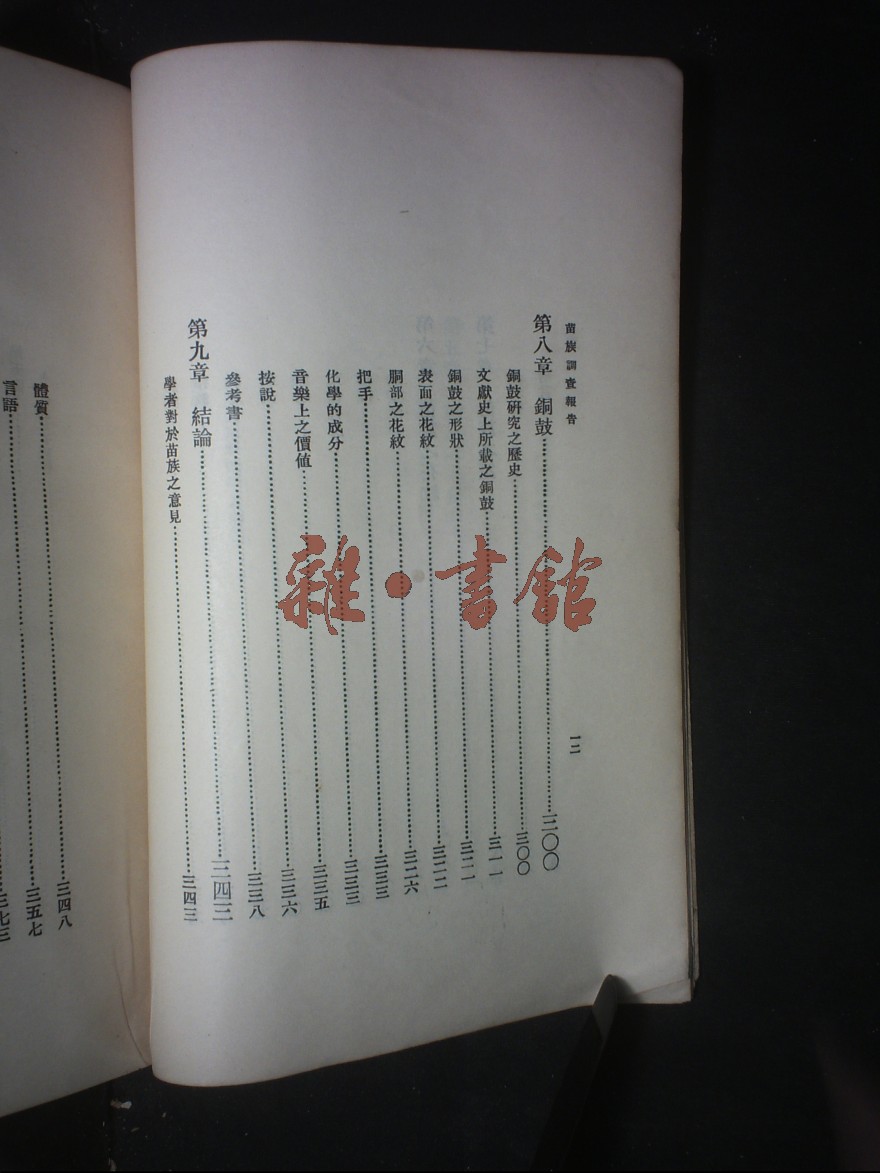 苗族調查報告
一二
第八章　銅鼓……三〇〇
銅鼓研究之歷史……三〇〇
文獻史上所載之銅鼓……三一一
銅鼓之形狀……三二一
表面之花紋……三二二
胴部之花紋……三二六
把手……三三三
化學的成分……三三三
音樂上之價値……三三五
按說……三三六
參考書……三三八
第九章　結論……三四三
學者對於苗族之意見……三四三
體質……三四八
言語……三五七
三七三
雜·書館